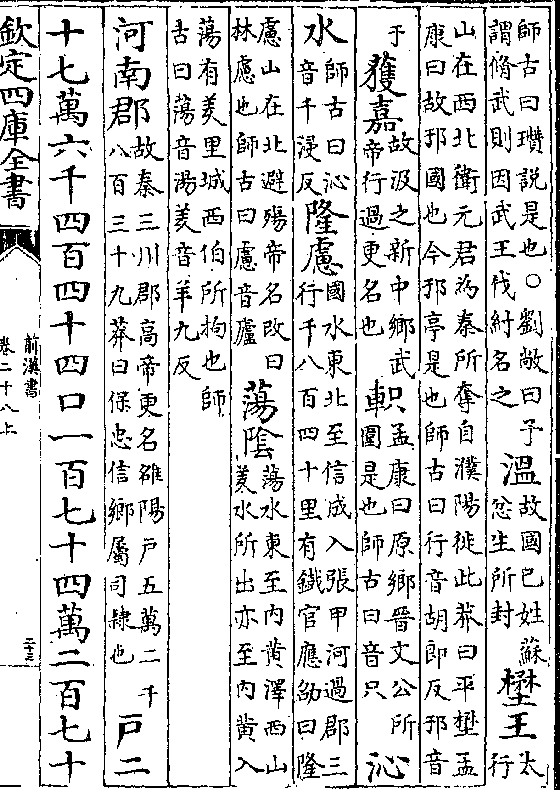 師古曰瓚説是也○劉敞曰予
謂脩武則因武王伐紂名之
溫
故國已姓蘇
忿生所封
壄王
太
行
山在西北衞元君為秦所奪自濮陽徙此莽曰平壄孟
康曰故邘國也今邘亭是也師古曰行音胡郎反邘音
于
獲嘉
故汲之新中鄉武
帝行過更名也
軹
孟康曰原鄉晉文公所
圍是也師古曰音只
沁
水
師古曰沁
音千浸反
隆慮
國水東北至信成入張甲河過郡三
行千八百四十里有鐵官應劭曰隆
慮山在北避殤帝名改曰
林慮也師古曰慮音廬
蕩陰
蕩水東至内黃澤西山
羑水所出亦至内黃入
蕩有羑里城西伯所拘也師
古曰蕩音湯羑音羊九反
河南郡
故秦三川郡高帝更名雒陽戸五萬二千
八百三十九莽曰保忠信鄉屬司隷也
戸二
十七萬六千四百四十四口一百七十四萬二百七十
欽定四庫全書
前漢書
卷二十八上
二十三